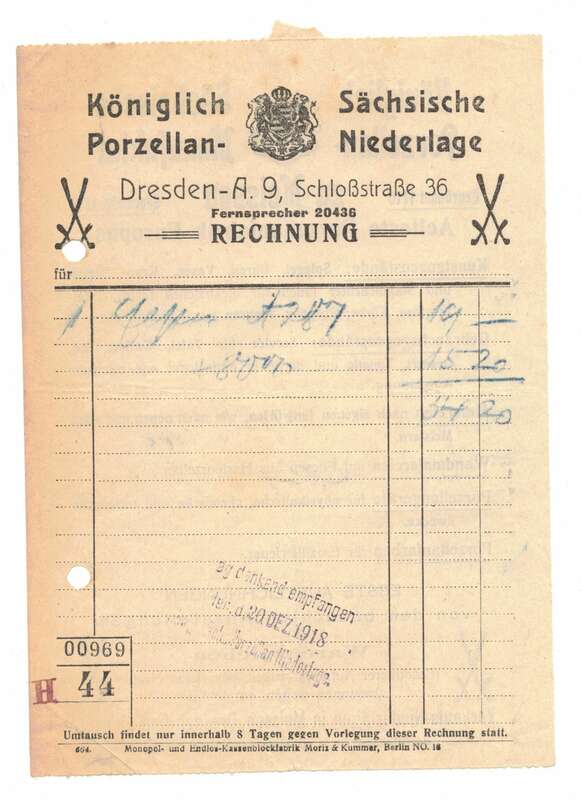 Königlich Sächsische
Porzellan- Niederlage
Dresden-A. 9, Schloßstraße 36
Fernsprecher 20436
RECHNUNG
für
1 A787 19 —
80% 15 20
34 20
dankend empfangen
d. 20 DEZ 1918
Porzellan Niederlage.
00969
H 44
Umtausch findet nur innerhalb 8 Tagen gegen Vorlegung dieser Rechnung statt.
664. Monopol- und Endlos-Kassenblockfabrik Moriz & Kummer, Berlin NO. 18